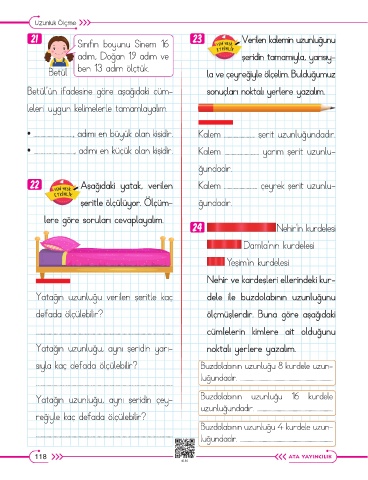 Uzunluk Ölçme
21
Sınıfın boyunu Sinem 16
adım, Doğan 19 adım ve
ben 13 adım ölçtük.
Betül
Betül'ün ifadesine göre aşağıdaki cüm-
leleri uygun kelimelerle tamamlayalım.
• ................, adımı en büyük olan kişidir.
• ................, adımı en küçük olan kişidir.
22
YENİ NESİL
ETKİNLİK
Aşağıdaki yatak, verilen
şeritle ölçülüyor. Ölçüm-
lere göre soruları cevaplayalım.
Yatağın uzunluğu verilen şeritle kaç
defada ölçülebilir?
Yatağın uzunluğu, aynı şeridin yarı-
sıyla kaç defada ölçülebilir?
Yatağın uzunluğu, aynı şeridin çey-
reğiyle kaç defada ölçülebilir?
23
YENİ NESİL
ETKİNLİK
Verilen kalemin uzunluğunu
şeridin tamamıyla, yarısıy-
la ve çeyreğiyle ölçelim. Bulduğumuz
sonuçları noktalı yerlere yazalım.
Kalem ............ şerit uzunluğundadır.
Kalem ............ yarım şerit uzunlu-
ğundadır.
Kalem ............ çeyrek şerit uzunlu-
ğundadır.
24
Nehir'in kurdelesi
Damla'nın kurdelesi
Yeşim'in kurdelesi
Nehir ve kardeşleri ellerindeki kur-
dele ile buzdolabının uzunluğunu
ölçmüşlerdir. Buna göre aşağıdaki
cümlelerin kimlere ait olduğunu
noktalı yerlere yazalım.
Buzdolabının uzunluğu 8 kurdele uzun-
luğundadır. ............
Buzdolabının uzunluğu 16 kurdele
uzunluğundadır. ............
Buzdolabının uzunluğu 4 kurdele uzun-
luğundadır. ............
118
ATA YAYINCILIK